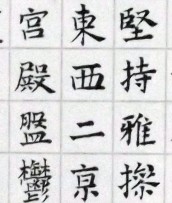 堅持雅操
東西二亰
宮殿盤鬱